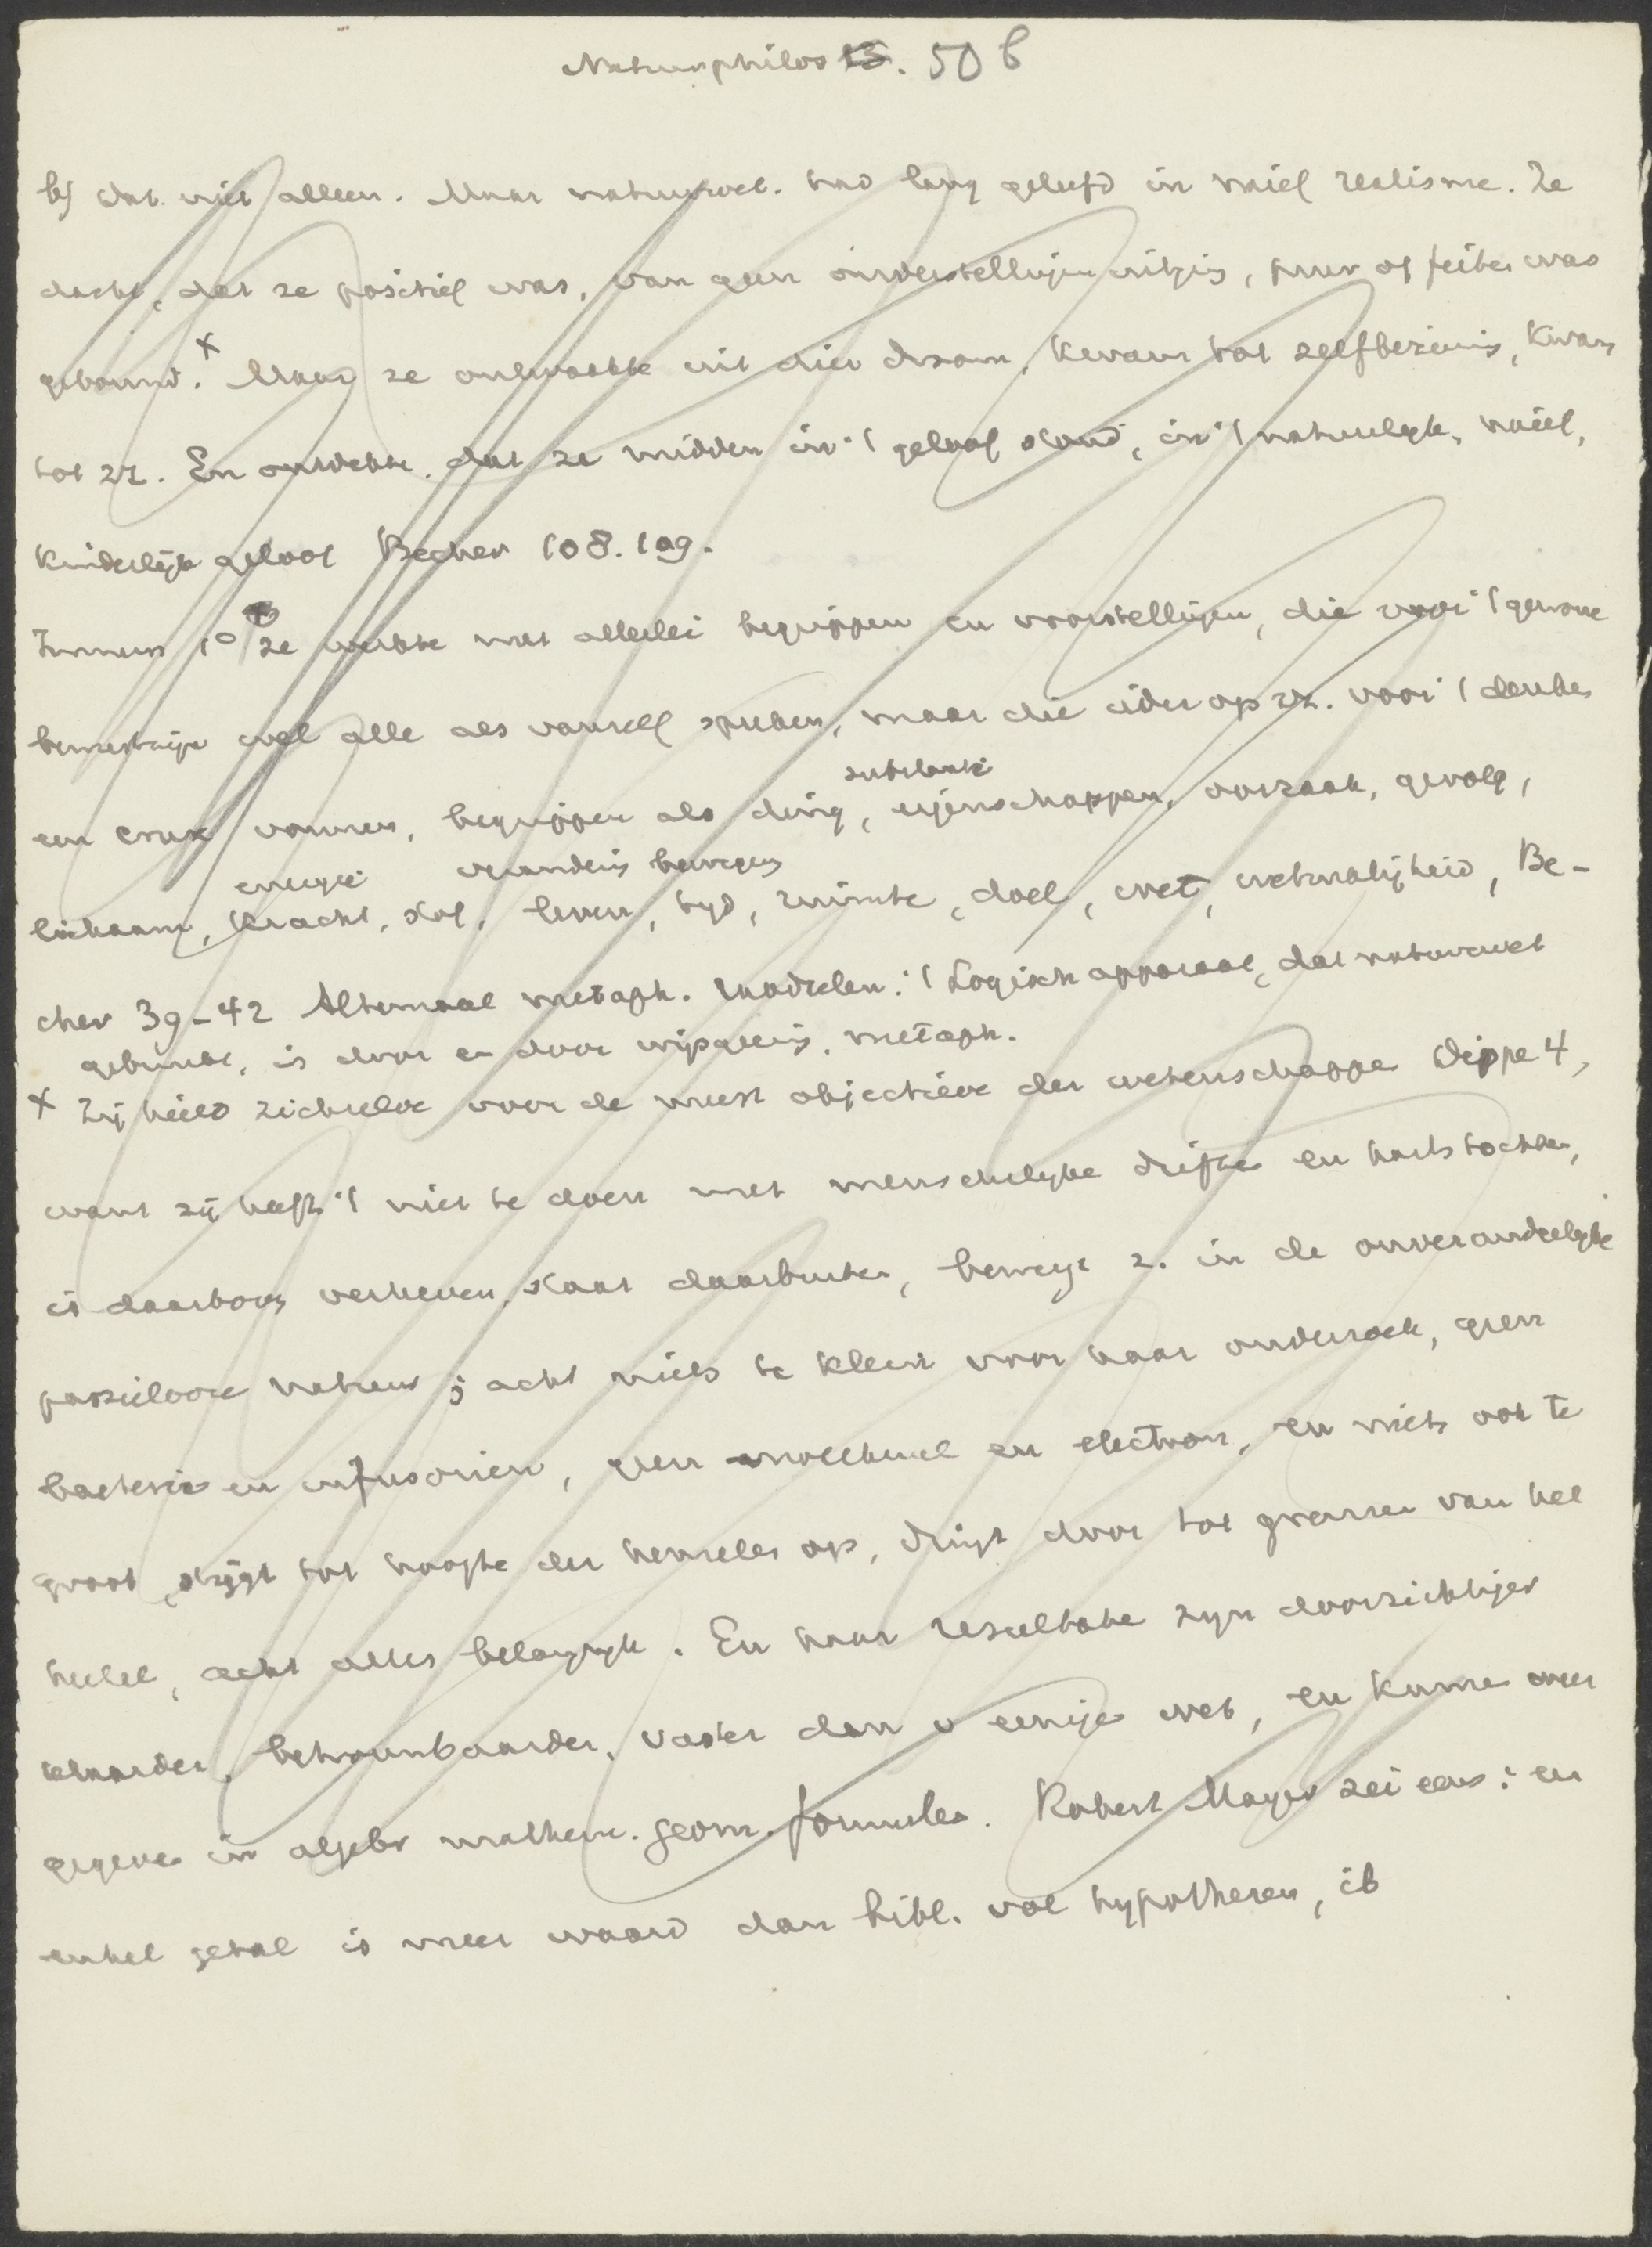 Naturphilos 13. 50 b
b) Dat niet alleen. Maar natuurwet. had lang geleefd in naief realisme. Ze
dacht, dat ze positief was, van geen onderstellingen uitging, puur op feiten was
gebouwd. x Maar ze ontwaakte uit dien droom, kwam tot zelfbezinnig, kwam
tot zz. En ontdekte, dat ze midden in 't geloof stond, in 't natuurlyk, naief,
kinderlijk geloof Becher 108.109.
Immers 1° ze werkte met allerlei begrippen en voorstellingen, die voor 't gewone
bewustzijn wel alle als vanzelf spreken, maar die ieder op zz. voor 't denken
een crux vormen, begrippen als ding, substantie eigenschappen, oorzaak, gevolg,
lichaam, kracht, energie stof, leven, verandering beweging tyd, ruimte, doel, wet, wetmatigheid, Be-
cher 39-42 Altemaal metaph. : 't Logisch apparaat, dat natuurwet
gebruikt, is door en door wijsgeerig, metaph.
x Zij hield zichzelve voor de meest objectieve der wetenschappen Dippe 4,
want zij heeft 't niet te doen met menschelyke driften en hartstochten,
is daarboven verheven, staat daarbuiten, beweegt z. in de onveranderlyke
passielooze natuur; acht niets te klein voor haar onderzoek, geen
bacteriën en infusoriën, geen molecuul en electron, en niets ook te
groot, stijgt tot hoogte der hemelen op, dringt door tot grenzen van het
heelal, acht alles belangryk. En haar resultaten zyn doorzichtiger
klaarder, betrouwbaarder, vaster dan v eenige wet, en kunnen weer
gegeven in algebr mathem. geom. formules. Robert Mayer zei eens: een
enkel getal is meer waard dan bibl. vol hypothesen, ib